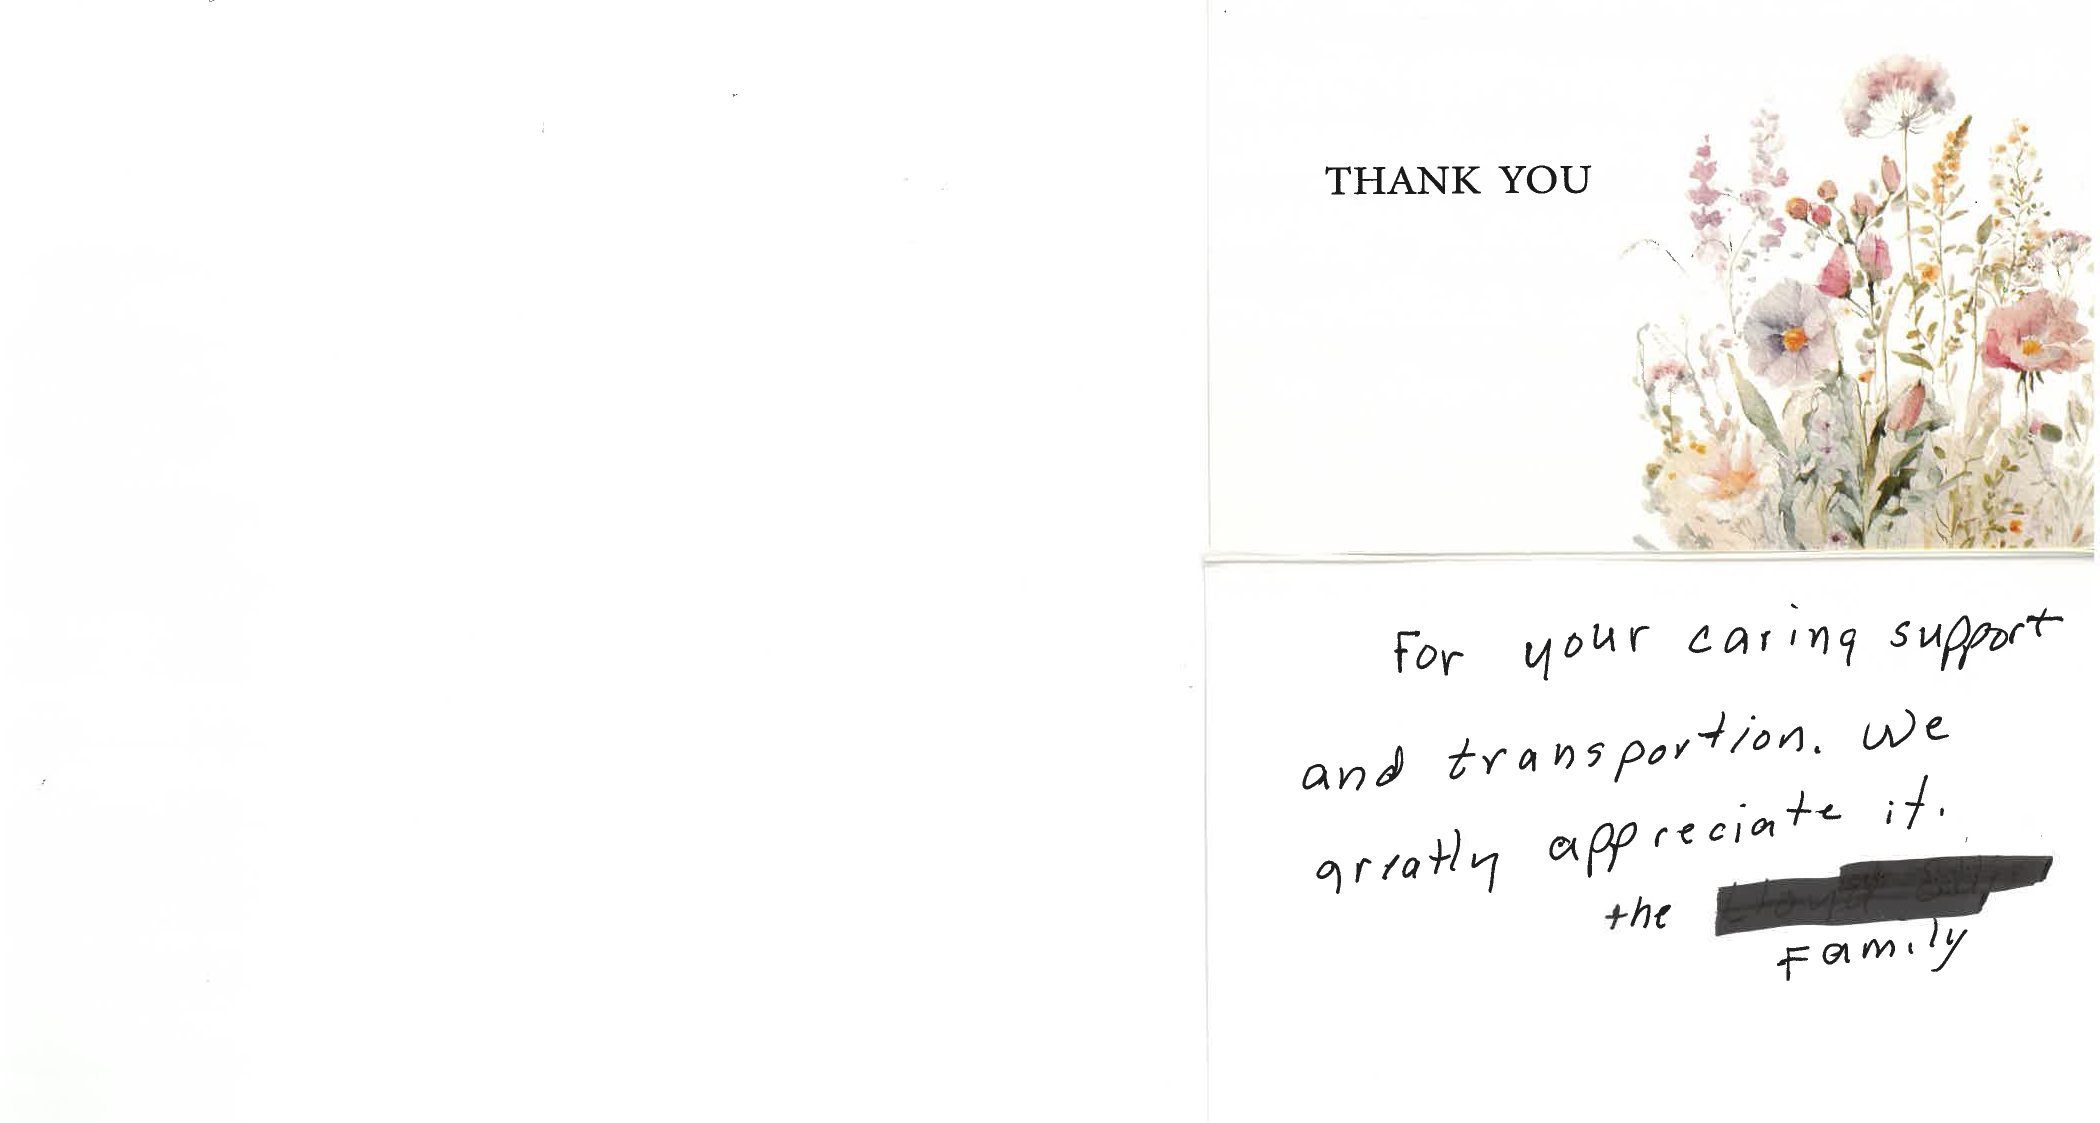 THANK YOU
For your caring support
and transportion. We
greatly appreciate it.
the
Family